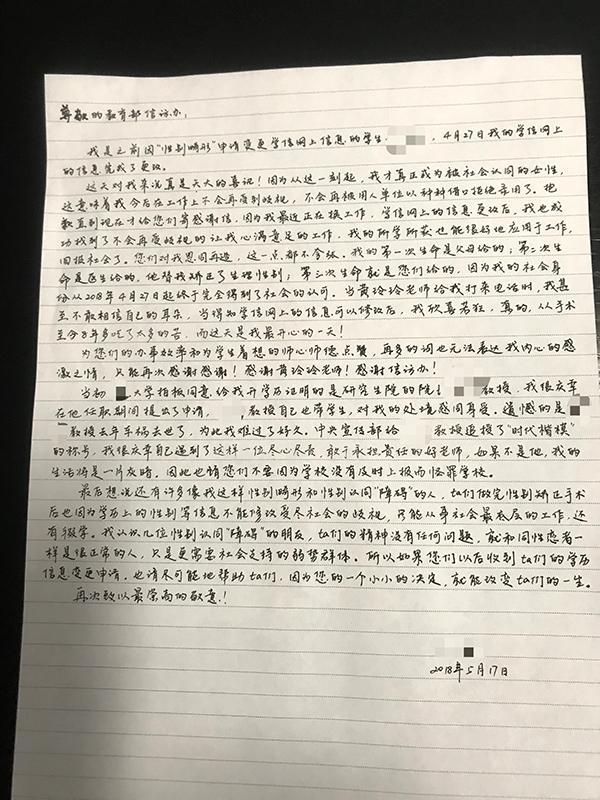 尊敬的教育部信访办：
我是之前因"性别畸形"申请变更学信网上信息的学生，4月27日我的学信网上
的信息完成了更改。
这天对我来说真是天大的喜讯！因为从这一刻起，我才真正成为被社会认同的女性，
这意味着我今后在工作上不会再受到歧视，不会再被用人单位以种种借口拒绝录用了。抱
歉直到现在才给您们寄感谢信，因为我最近正在换工作，学信网上的信息更改后，我也成
功找到了不会再受歧视的让我心满意足的工作，我的所学所获也能很好地应用于工作，
回报社会了。您们对我恩同再造，这一点都不夸张。我的第一次生命是父母给的；第二次生
命是医生给的，他替我矫正了生理性别；第三次生命就是您们给的，因为我的社会身
份从2018年4月27日起终于完全得到了社会的认可。当黄玲玲老师给我打来电话时，我甚
至不敢相信自己的耳朵，当得知学信网上的信息可以修改后，我欣喜若狂，真的，从手术
至今8年多吃了太多的苦，而这天是我最开心的一天！
为您们的办事效率和为学生着想的师心师德点赞，再多的词也无法表达我内心的感
激之情，只能再次感谢感谢！感谢黄玲玲老师！感谢信访办！
当初大学拍板同意给我开学历证明的是研究生院的院教授，我很庆幸
在他任职期间提出了申请，教授自己也带学生，对我的处境感同身受。遗憾的是
教授去年车祸去世了，为此我难过了好久。中央宣传部给教授追授了"时代楷模"
的称号，我很庆幸自己遇到了这样一位尽心尽责、敢于承担责任的好老师，如果不是他，我的
生活将是一片灰暗。因此也请您们不要因为学校没有及时上报而怪罪学校。
最后想说还有许多像我这样性别畸形和性别认同"障碍"的人，ta们做完性别矫正手术
后也因为学历上的性别等信息不能修改受尽社会的歧视，只能从事社会最底层的工作，还
有辍学。我认识几位性别认同"障碍"的朋友，ta们的精神没有任何问题，就和同性恋者一
样是很正常的人，只是更需要社会支持的弱势群体。所以如果您们以后收到ta们的学历
信息变更申请，也请尽可能地帮助ta们，因为您的一个小小的决定，就能改变ta们的一生。
再次致以最崇高的敬意！
2018年5月17日